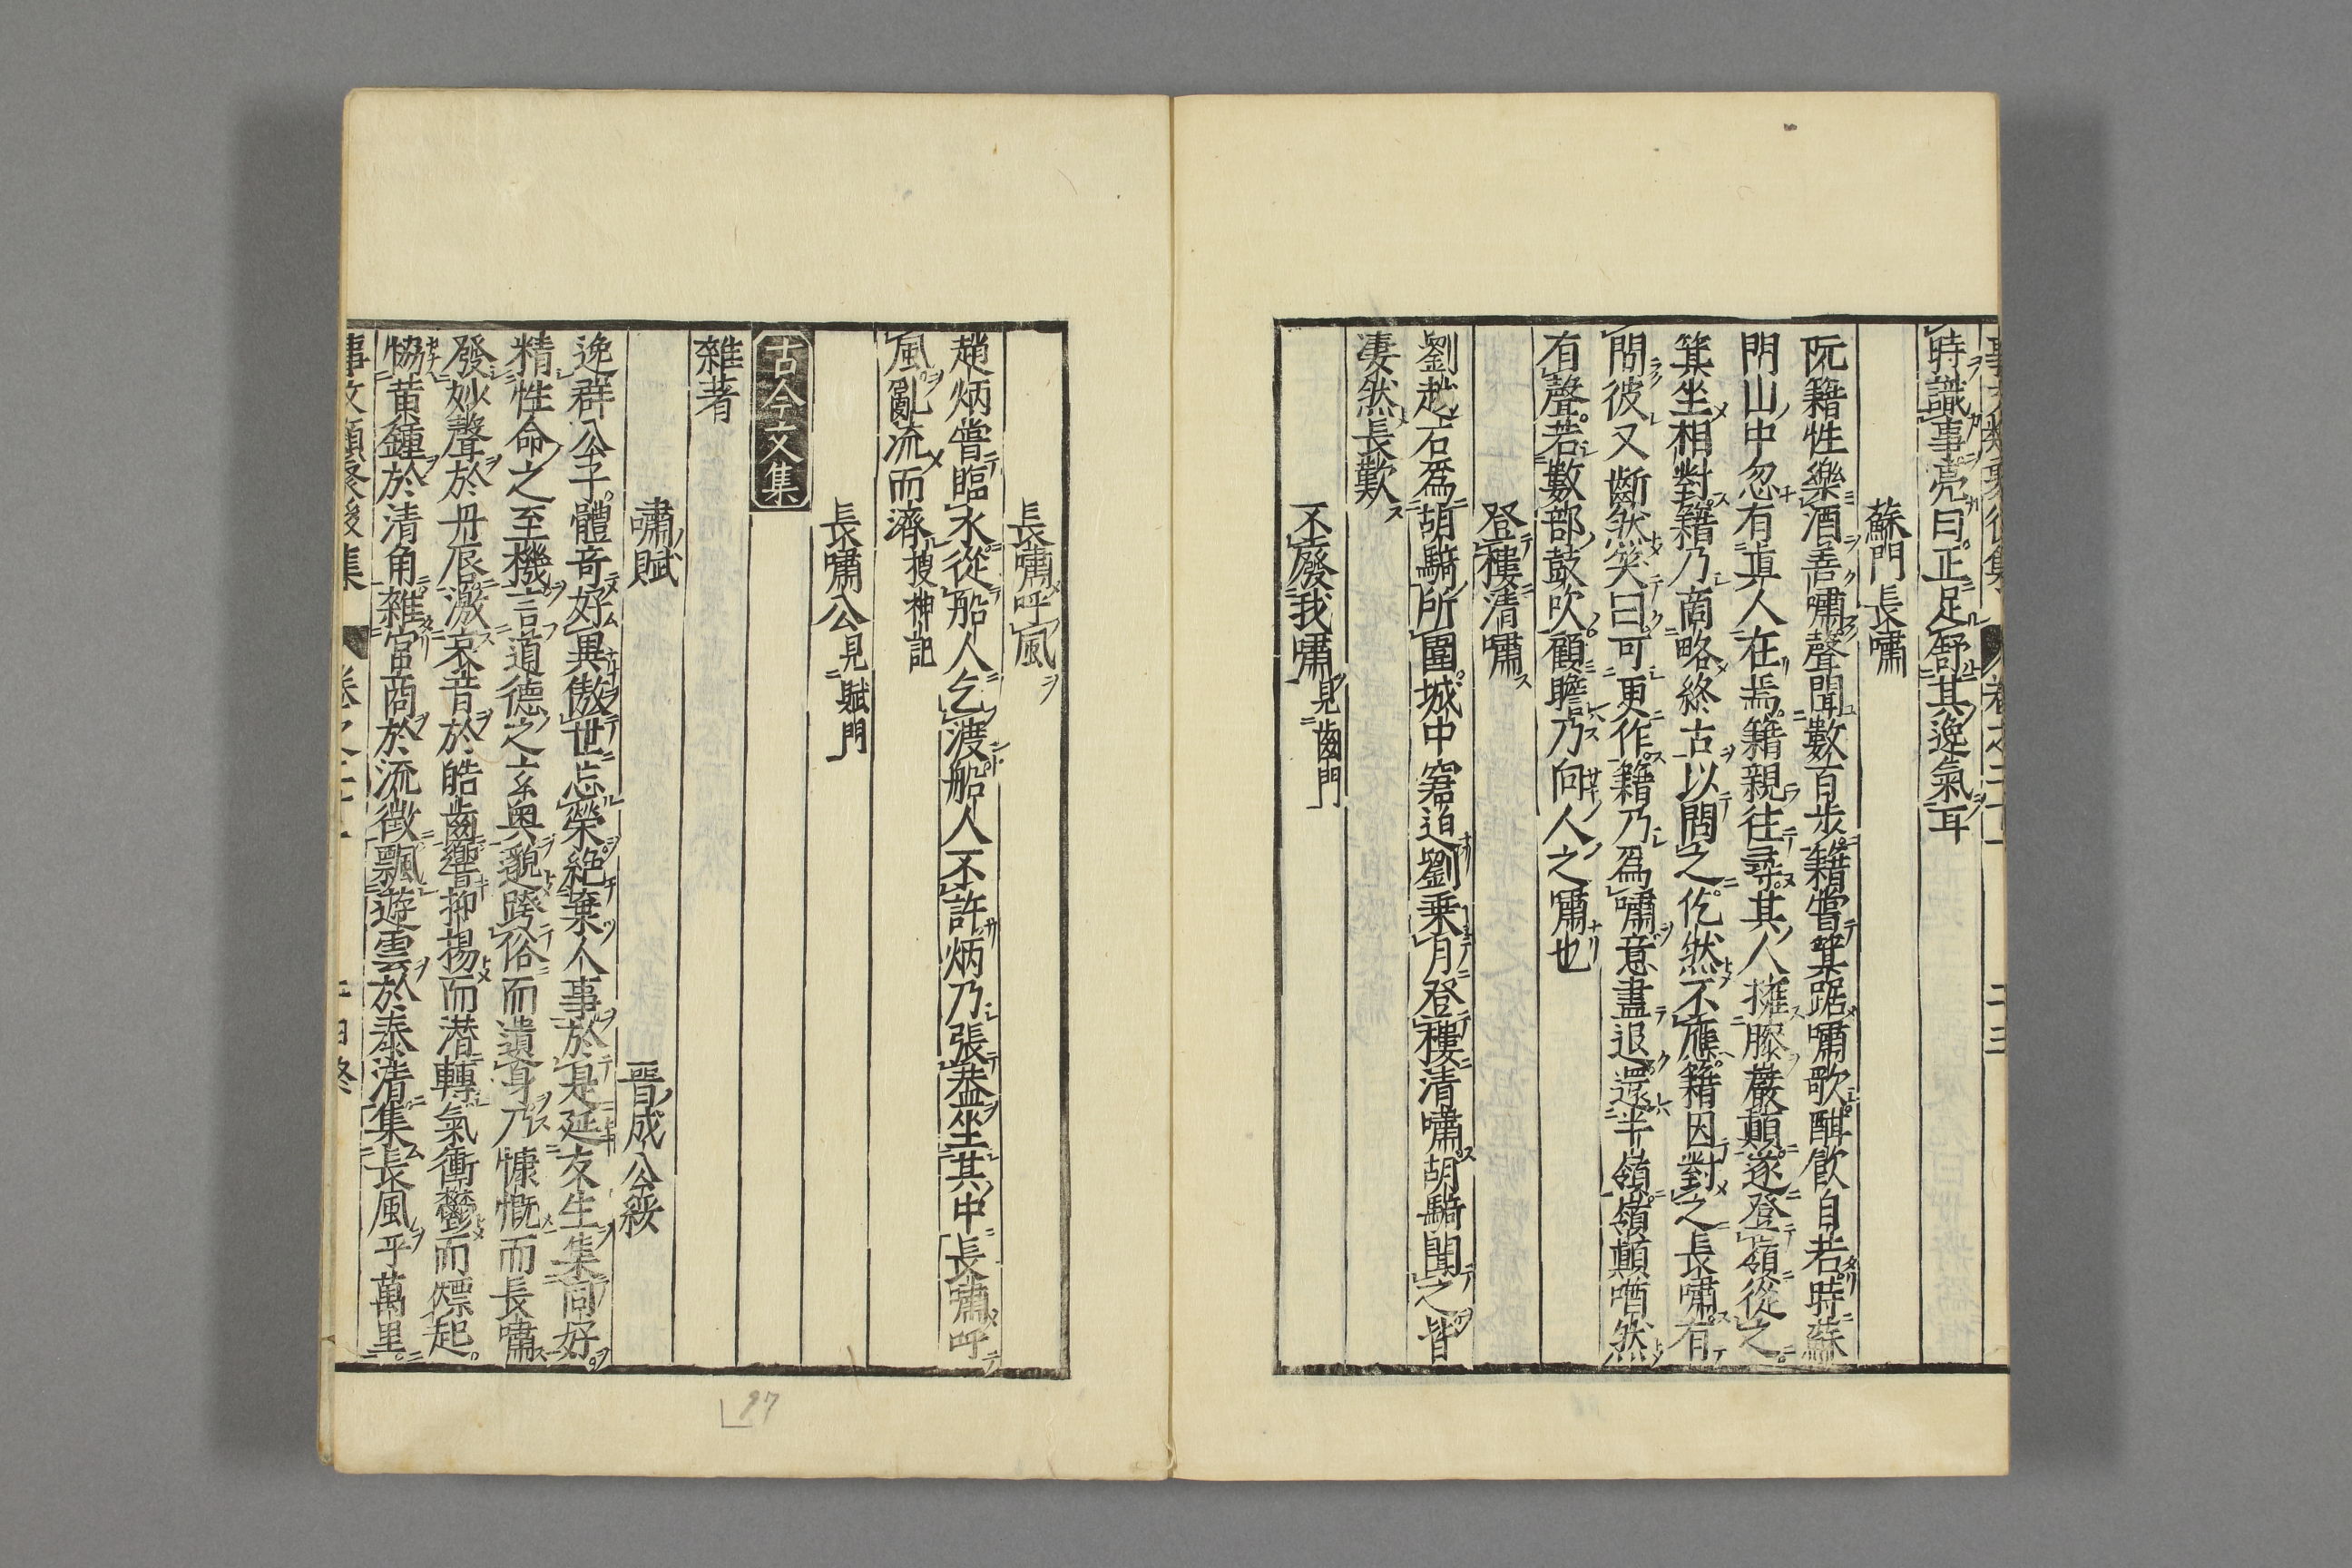 時識事亮曰正足舒其逸氣耳
蘇門長嘯
阮籍性樂酒善嘯聲聞數百步籍嘗箕踞嘯歌酣飲自若時蘇
門山中忽有真人在焉籍親往尋其人擁膝巖顛遂登嶺從之
箕坐相對籍乃商略終古以問之仡然不應籍因對之長嘯有
間彼又斷然笑曰可更作籍乃爲嘯意盡退還半嶺嶺顛喈然
有聲若數部鼓吹顧瞻乃向人之嘯也
登樓清嘯
劉越石爲胡騎所圍城中窘迫劉乗月登樓清嘯胡騎聞之皆
凄然長歎
不廢我嘯見齒門
長嘯呼風
趙炳嘗臨水從船人乞渡船人不許炳乃張蓋坐其中長嘯呼
風亂流而濟搜神記
長嘯公見賦門
古今文集
雜著
嘯賦 晉成公綏
逸群公子體奇好異傲世忘榮絶棄人事於是延友生集同好
精性命之至機言道德之玄奥邈跨俗而遺身乃慷慨而長嘯
發妙聲於丹唇激哀音於皓齒響抑揚而潜轉氣衝鬱而熛起
協黄鍾於清角雜宮商於流徴飄遊雲於泰清集長風乎萬里
事文類聚後集 卷之二十一